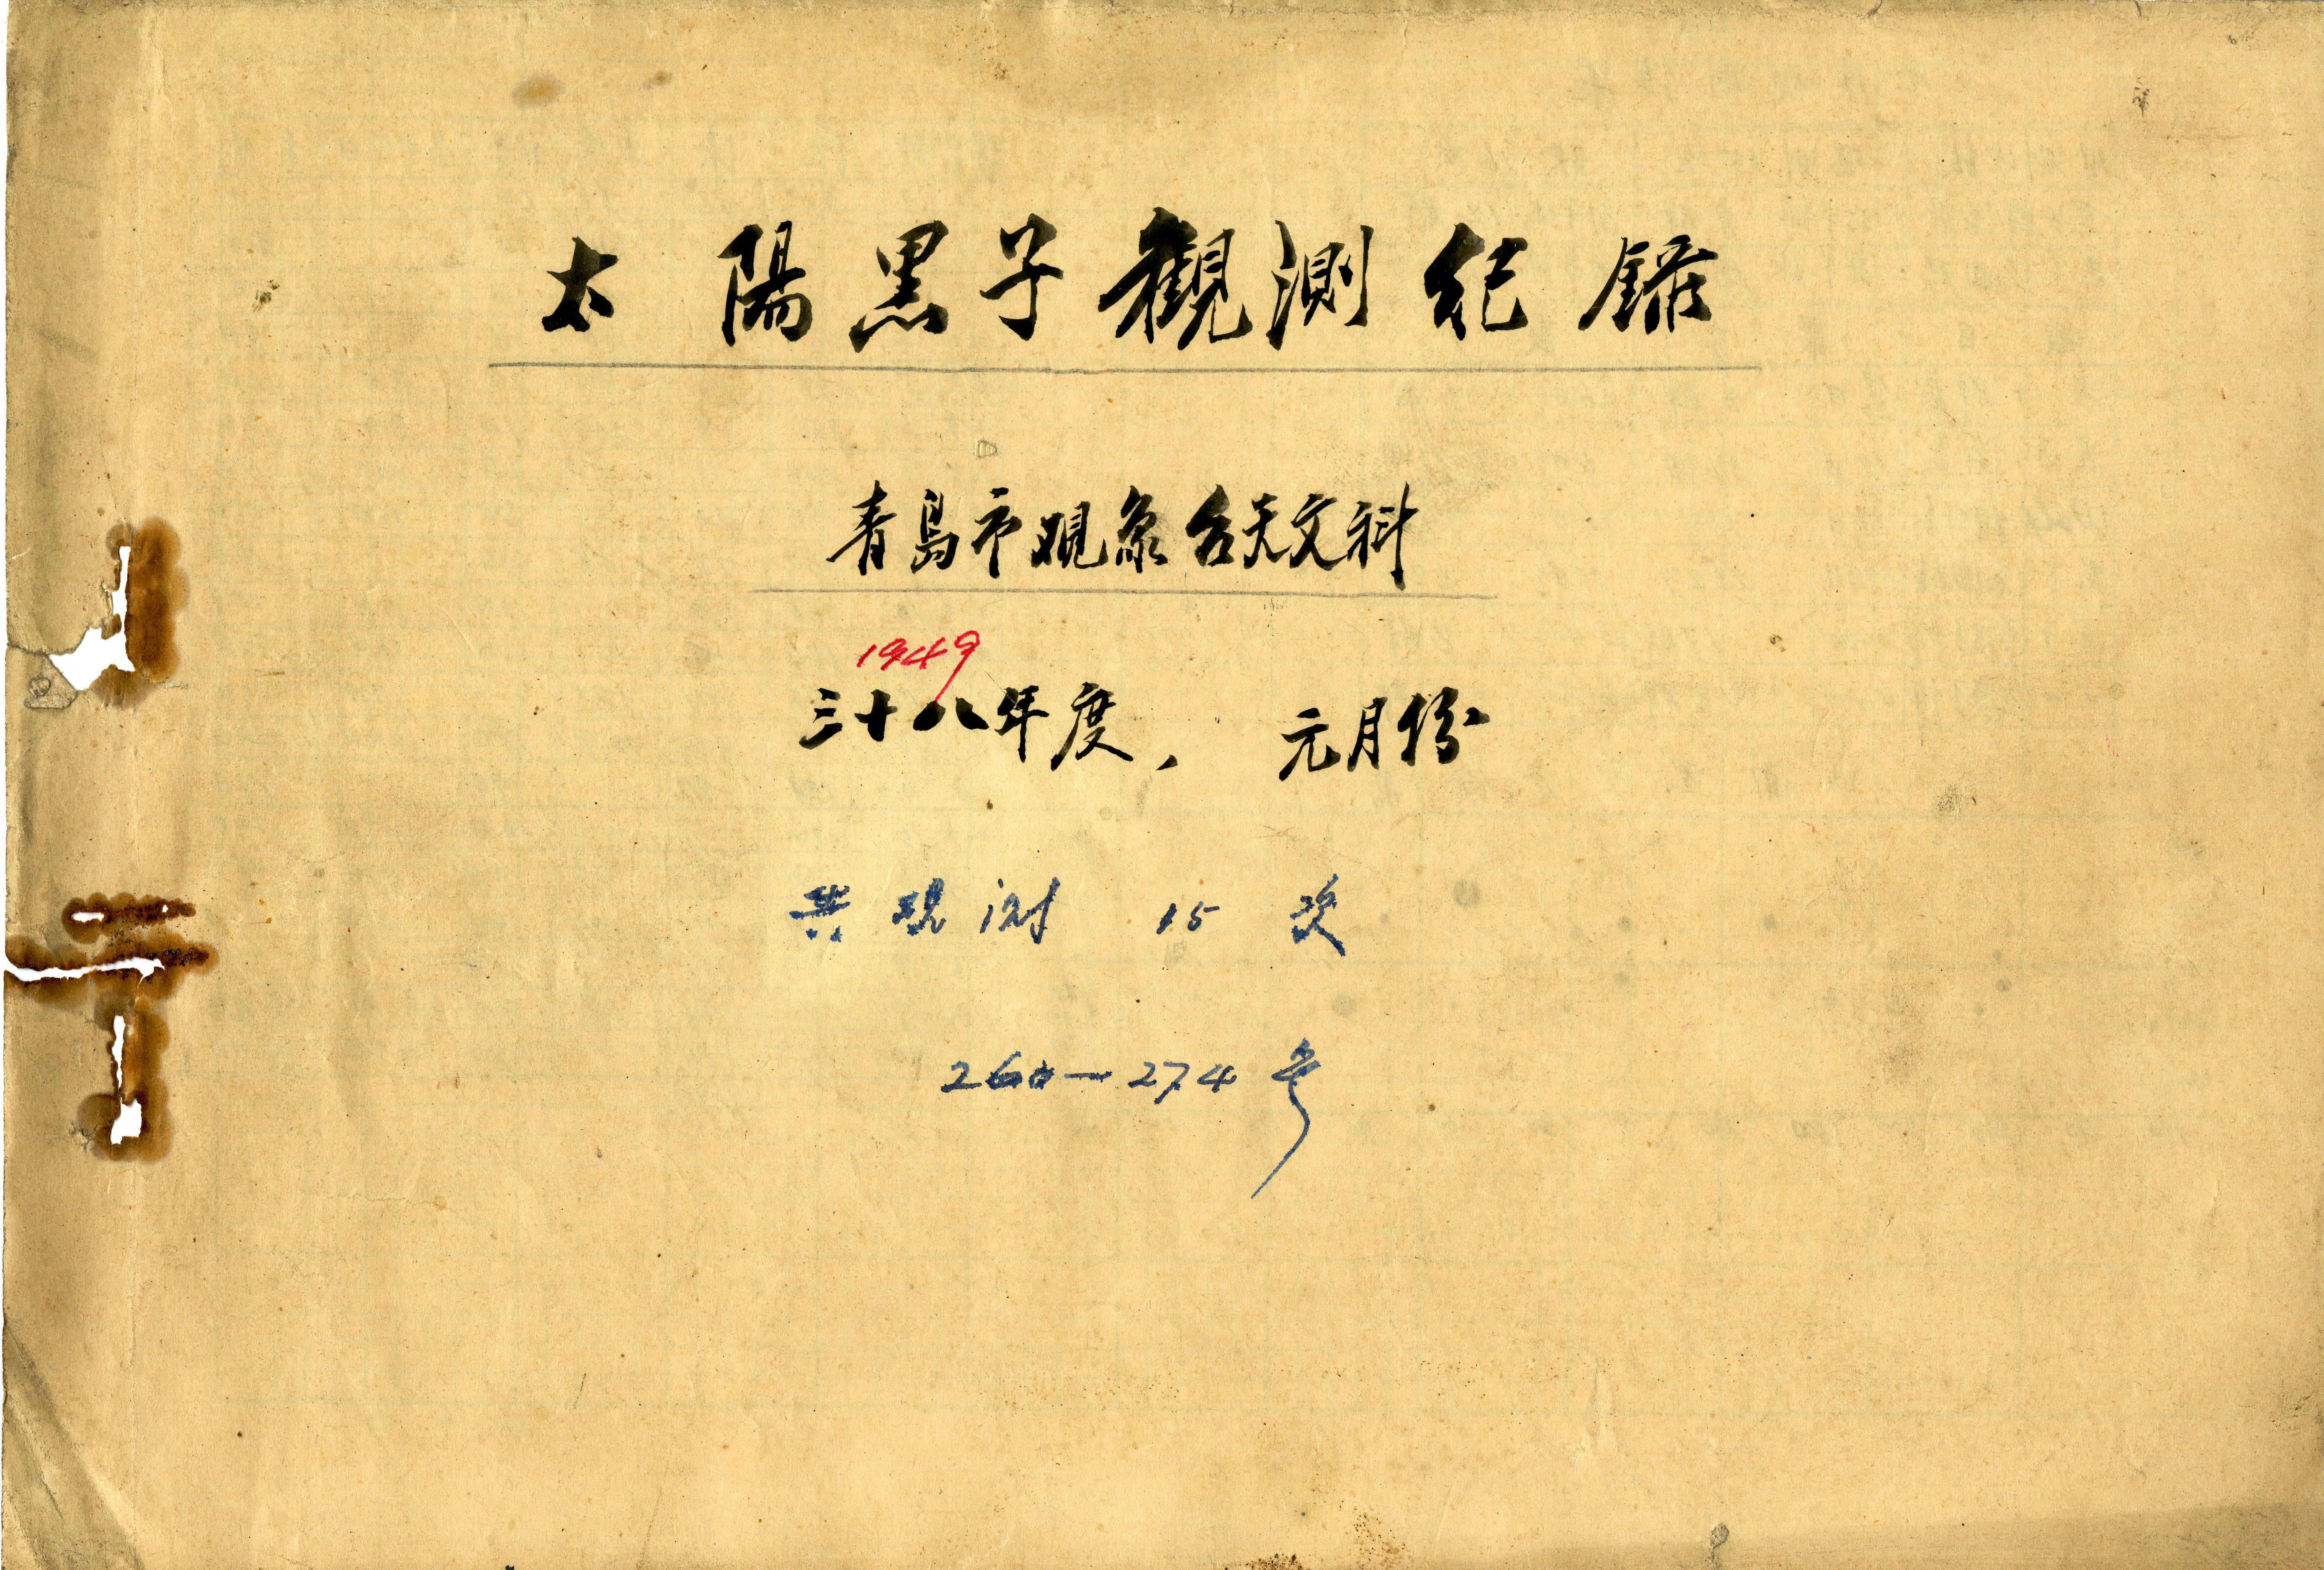 太陽黑子觀測纪錄
青島市观象台天文科
1949
三十八年度, 元月份
共观测 15 次
260—274号